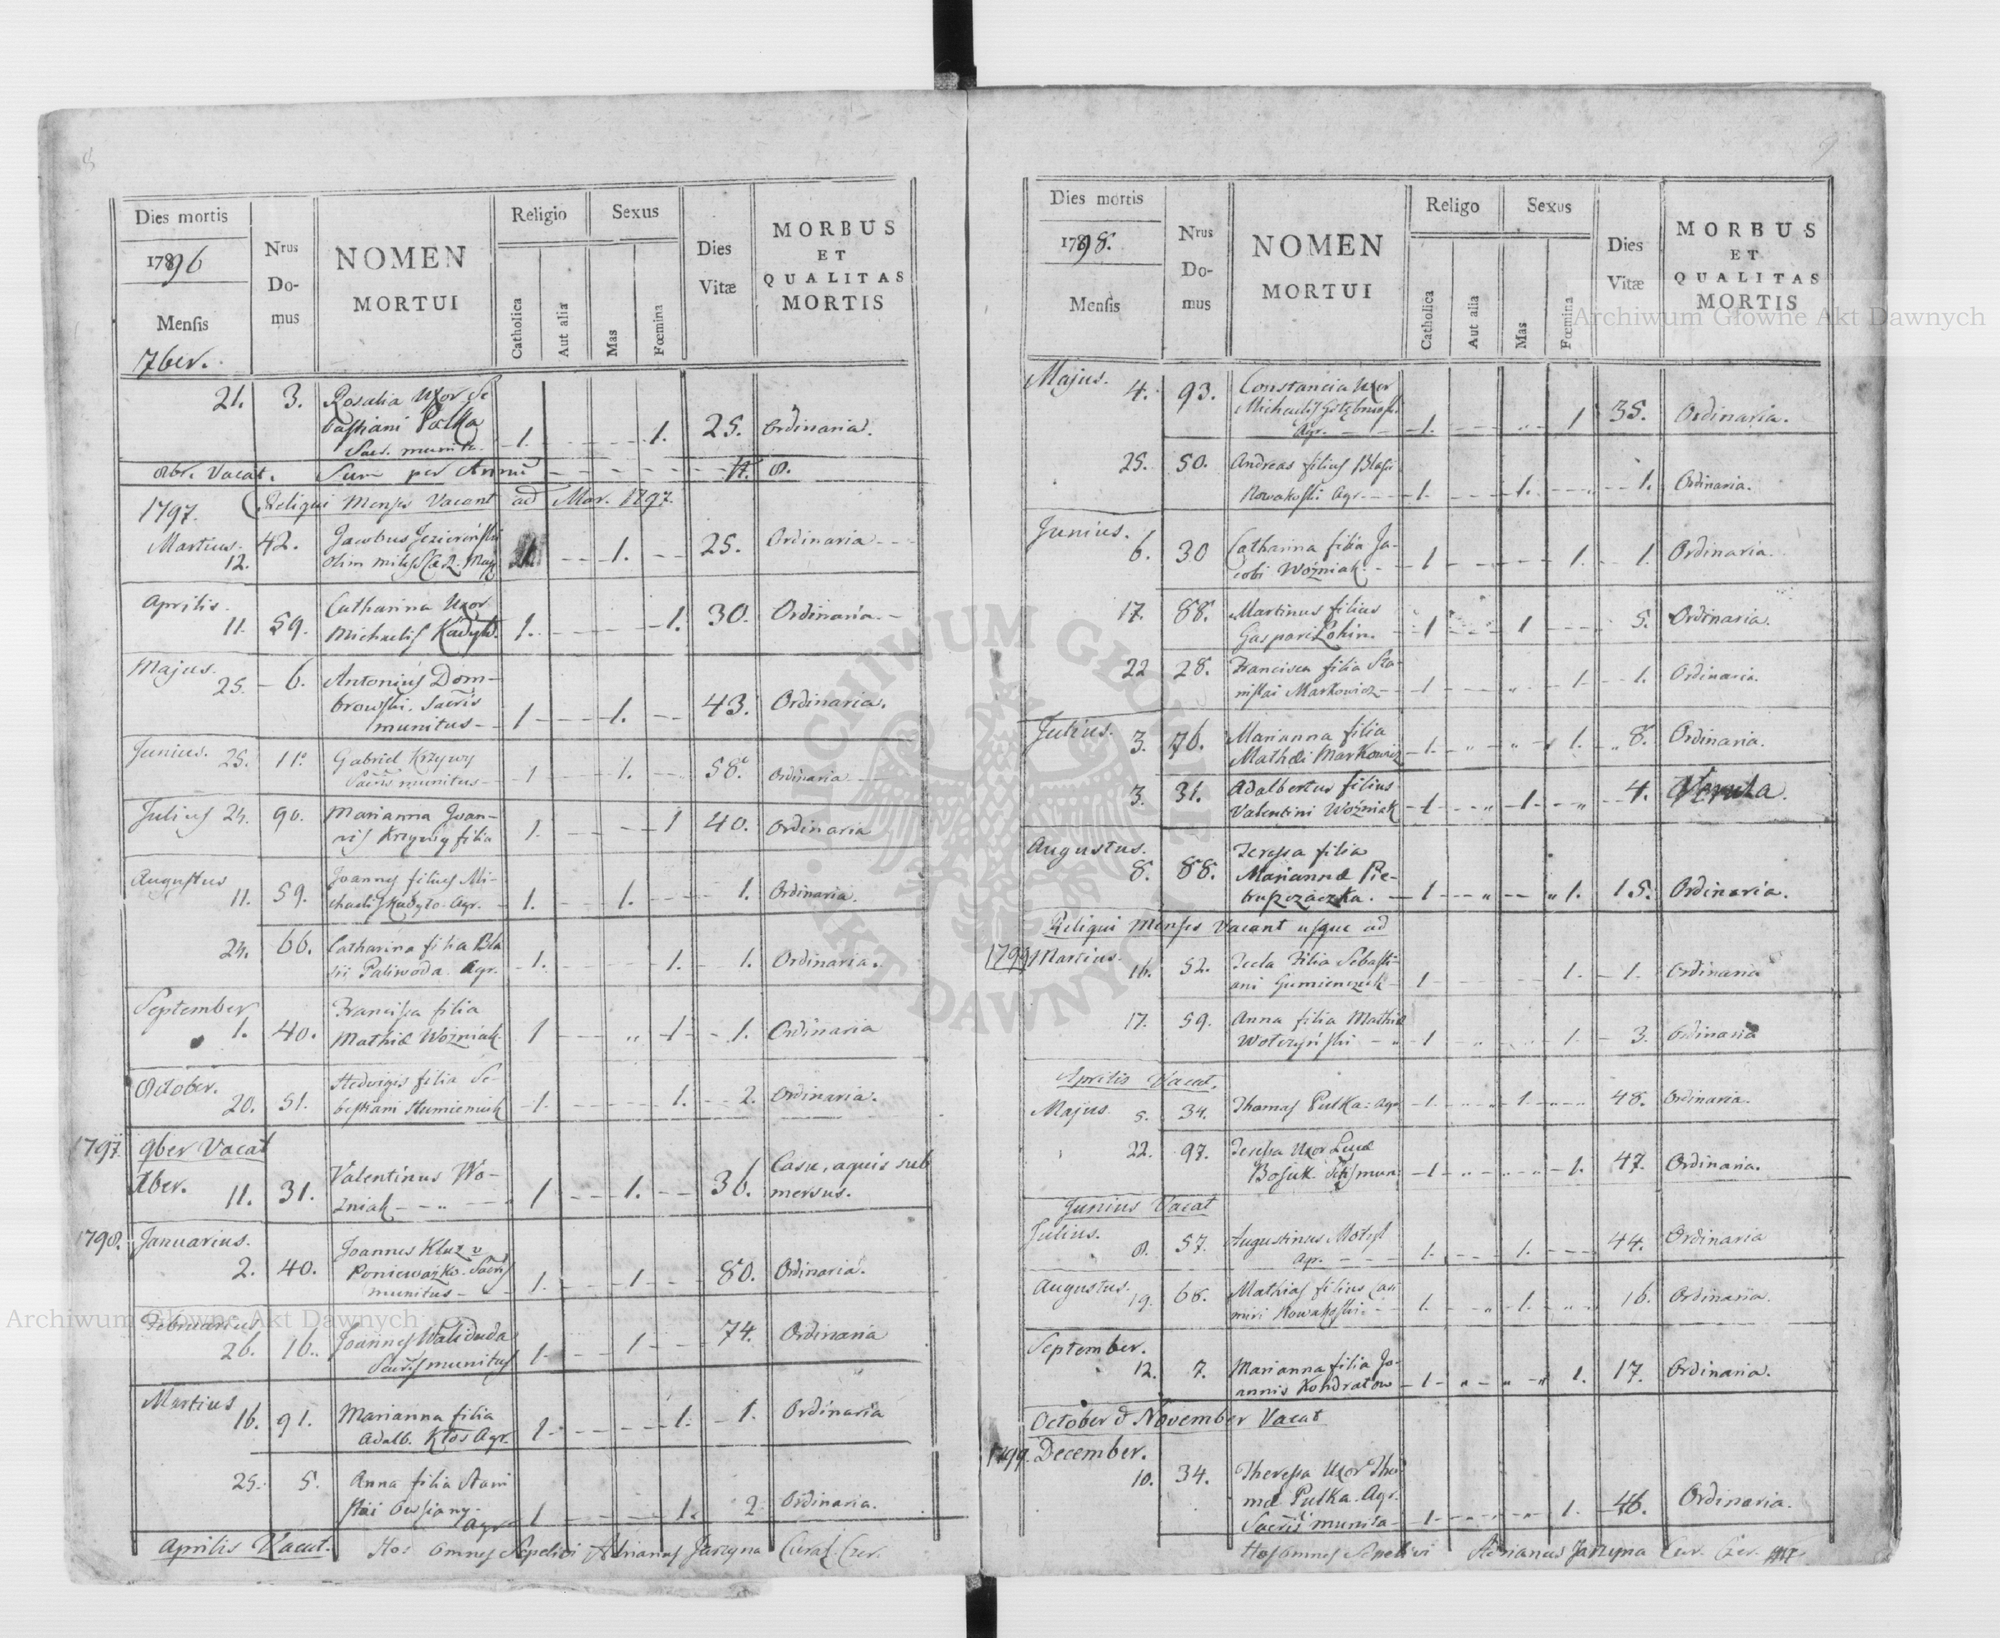 8
Dies mortis
1796
Mensis
7ber.
Nrus Do-mus
NOMEN MORTUI
Religio
Catholica
Aut alia
Sexus
Mas
Fœmina
Dies Vitæ
MORBUS ET QUALITAS MORTIS
21. 3. Rosalia Uxor Se
bastiani Pałka 1. 1. 25. Ordinaria.
Sacr. munita.
8br. Vacat. Sum per Annum
Reliqui Menses Vacant ad Mar. 1797
1797.
Martius. 42. Jacobus
12. olim miles 1 1. 25. Ordinaria
Aprilis. Catharina Uxor
11. 59. Michaelis 1. 1. 30. Ordinaria.
Majus. 25. 6. Antonius Dom-
browski. Sacris
munitus 1 1. 43. Ordinaria.
Junius. 25. 11. Gabriel Krzywy
Sacris munitus 1 1. 58. Ordinaria
Julius 24. 90. Marianna Joan-
nis Krzywy filia 1. 1 40. Ordinaria
Augustus Joannes filius Mi-
11. 59. chaelis Agr. 1. 1. 1. Ordinaria.
24. 66. Catharina filia Bla
sii Paliwoda. Agr. 1. 1. 1. Ordinaria.
September Francisca filia
1. 40. Mathiæ Wozniak. 1 1 1. Ordinaria
October. Hedvigis filia Se-
20. 51. bestiani 1. 1. 2. Ordinaria.
1797. 9ber Vacat
Xber. 11. 31. Valentinus Wo-
zniak 1 1. 36. Casu, aquis sub
mersus.
1798. Januarius. Joannes Kluz v
2. 40. Poniewazko. Sacris
munitus 1. 1 80. Ordinaria.
Februarius
26. 16. Joannes Waliduda
Sacris munitus 1. 1 74. Ordinaria
Martius
16. 91. Marianna filia
Adalb. Kłos Agr. 1. 1. 1. Ordinaria
25. 5. Anna filia Stani
slai
Agr 1 1. 2 Ordinaria.
Aprilis Vacat. Hos omnes Sepelivi Adrianus Jarzyna Curat. Czer.
9
Dies mortis
1798.
Mensis
Nrus Do-mus
NOMEN MORTUI
Religo
Catholica
Aut alia
Sexus
Mas
Fœmina
Dies Vitæ
MORBUS ET QUALITAS MORTIS
Majus. 4. 93. Constancia Uxor
Michaelis
Agr. 1. 1 35. Ordinaria.
25. 50. Andreas filius Blasii
Nowakoski Agr. 1. 1. 1. Ordinaria.
Junius.
6. 30 Catharina filia Ja-
cobi Wozniak. 1 1. 1. Ordinaria.
17. 88. Martinus filius
Gaspari 1 1 5. Ordinaria.
22 28. Francisca filia Sta-
nislai Markowicz 1 1. 1. Ordinaria.
Julius. 3. 76. Marianna filia
Mathæi Markowicz 1. 1. 8. Ordinaria.
3. 31. Adalbertus filius
Valentini Wozniak 1 1 4.
Augustus.
8. 88. Teressa filia
Mariannæ Pie-
1 1. 15. Ordinaria.
Reliqui Menses Vacant usque ad
1799 Martius. 16. 52. Tecla Filia Sebasti-
ani 1 1. 1. Ordinaria
17. 59. Anna filia Mathiæ
1 1. 3. Ordinaria
Aprilis Vacat.
Majus 5. 34. Thomas Pułka. Agr 1. 1. 48. Ordinaria.
22. 97. Teressa Uxor Lucæ
1 1. 47. Ordinaria.
Junius Vacat
Julius.
8. 57. Augustinus Motyl
Agr. 1. 1. 44. Ordinaria
Augustus. 19. 68. Mathias filius Casi
miri Nowakoski. 1. 1. 16. Ordinaria.
September.
12. 7. Marianna filia Jo-
annis Kondratow 1 1. 17. Ordinaria.
October & November Vacat
1799. December.
10. 34. Theressa Uxor Tho
mæ Pułka. Agr.
Sacris munita 1 1. 46. Ordinaria.
Hos omnes Sepelivi Adrianus Jarzyna Cur. Czer.
Archiwum Główne Akt Dawnych
Archiwum Główne Akt Dawnych
ARCHIWUM GŁÓWNE AKT DAWNYCH